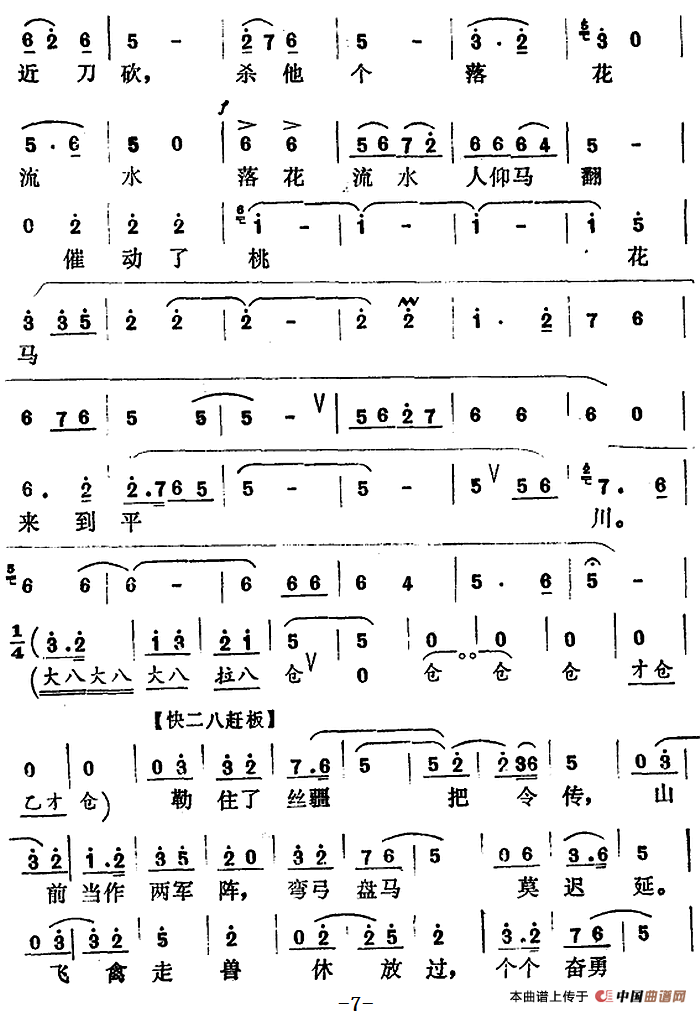 6 2 6 | 5 - | 2 7 6 | 5 - | 3 . 2 | 3 0
近 刀 砍， 杀 他 个 落 花
f
5 . 6 | 5 0 | 6 6 | 5 6 7 2 | 6 6 6 4 | 5 -
流 水 落 花 流 水 人 仰 马 翻
0 2 | 2 2 | 1 - | 1 - | 1 - | 1 5
催 动 了 桃 花
3 3 5 | 2 2 | 2 - | 2 2 | 1 . 2 | 7 6
马
6 7 6 | 5 5 | 5 - V | 5 6 2 7 | 6 6 | 6 0
6 . 2 | 2 . 7 6 5 | 5 - | 5 - | 5 V 5 6 | 7 . 6
来 到 平 川。
6 6 | 6 - | 6 6 6 | 6 4 | 5 . 6 | 5 -
1/4 ( 3 . 2 | 1 3 | 2 1 | 5 | 5 | 0 | 0 | 0 | 0
(大八大八 大八 拉八 仓 V 0 仓 仓 仓 才仓
【快二八赶板】
0 | 0 | 0 3 | 3 2 | 7 . 6 | 5 | 5 2 | 2 3 6 | 5 | 0 3
乙才 仓) 勒 住了 丝疆 把 令 传， 山
3 2 | 1 . 2 | 3 5 | 2 0 | 3 2 | 7 6 | 5 | 0 6 | 3 . 6 | 5
前 当作 两军 阵， 弯弓 盘马 莫 迟 延。
0 3 | 3 2 | 5 | 2 | 0 2 | 2 5 | 2 | 3 . 2 | 7 6 | 5
飞 禽 走 兽 休 放 过， 个个 奋勇
-7-
本曲谱上传于 中国曲谱网